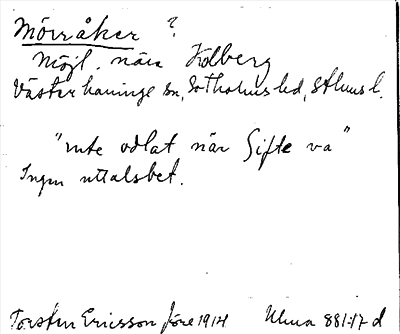 Mörråker ?
Möjl. nära Kolberg
Västerhaninge sn, Sotholms hd, Sthlms l.
"inte odlat när Gifte va"
Ingen uttalsbet.
Torsten Ericsson före 1914 Uluа 881:17 d